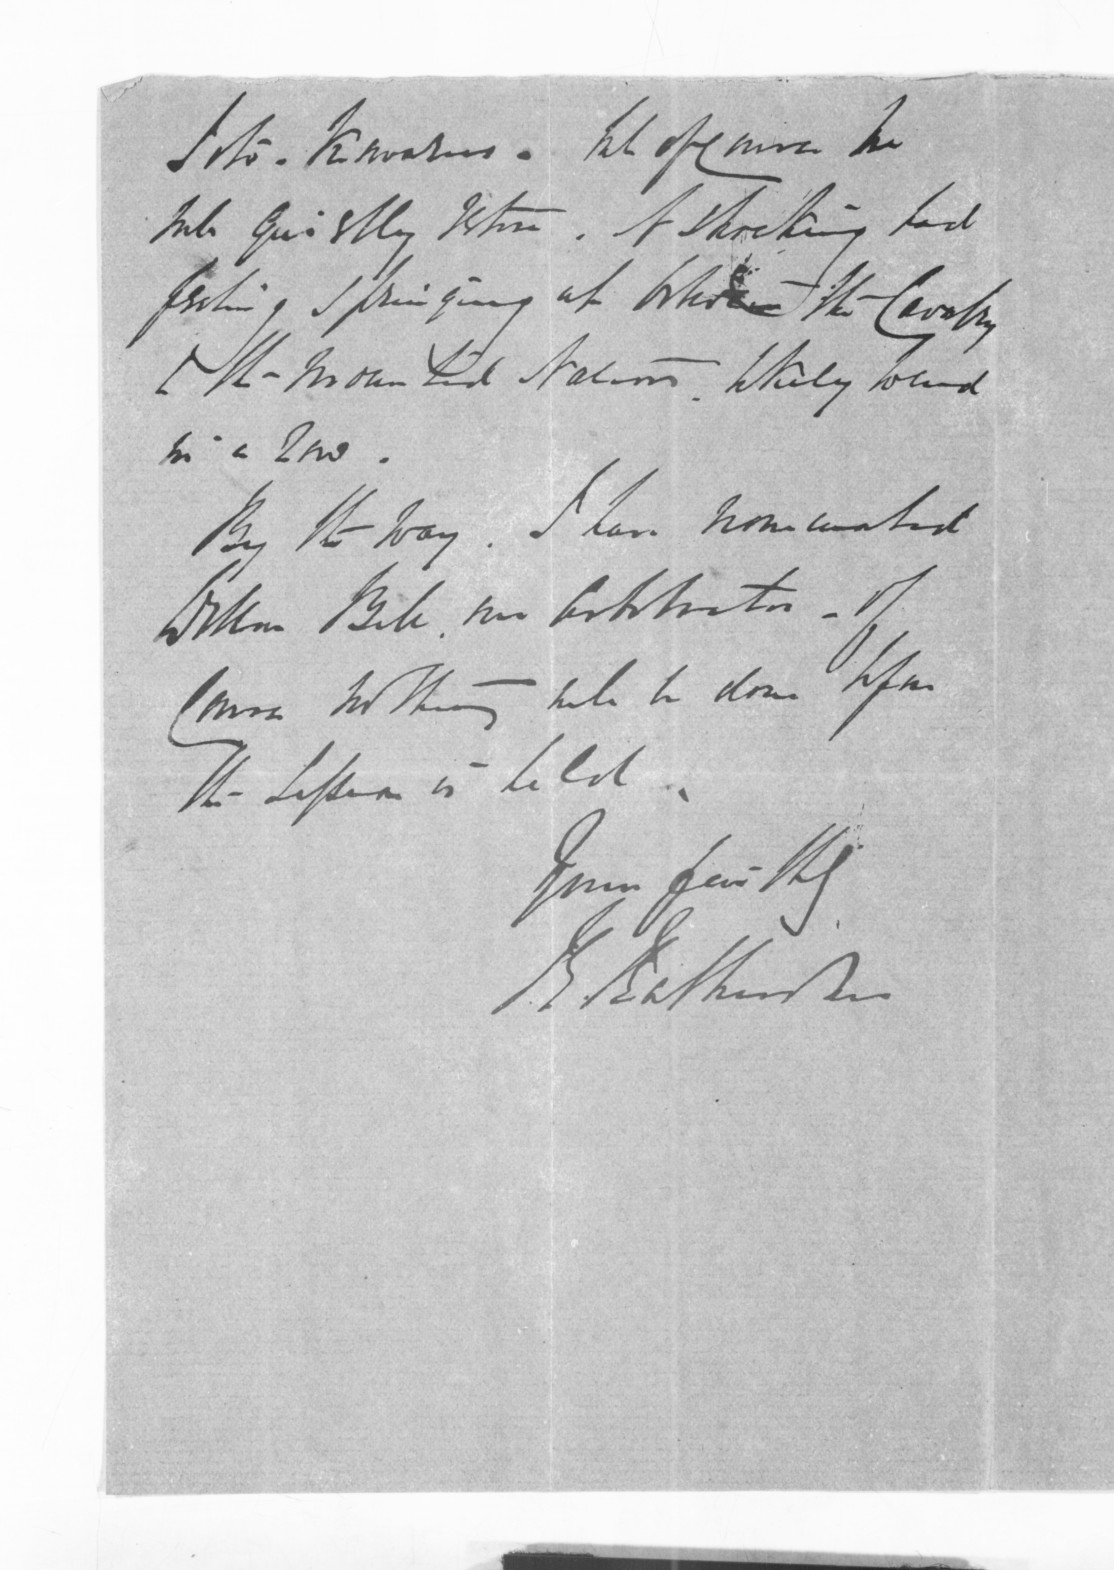 . but of course he
will quietly return. A shocking bad
feeling springing up between the Cavalry
& the Mounted Natives. likely to end
in a row.
By the way. I have nominated
Bell, an arbitrator - of
Course nothing will be done before
the is held.
Yours faithfly